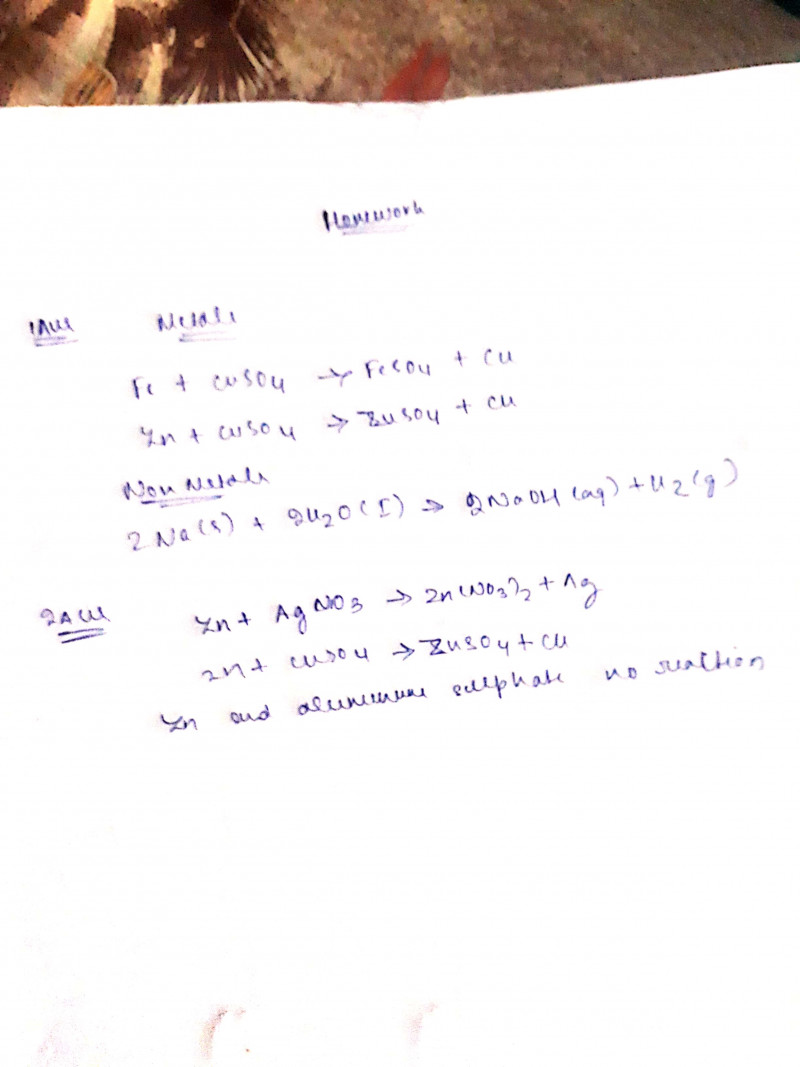 Homework
1Ans Metals
Fe + CuSO4 → FeSO4 + Cu
Zn + CuSO4 → ZnSO4 + Cu
Non Metals
2Na(s) + 2H2O(I) → 2NaOH (aq) + H2(g)
2Ans Zn + AgNO3 → Zn(NO3)2 + Ag
Zn + CuSO4 → ZnSO4 + Cu
Zn and aluminium sulphate no reaction